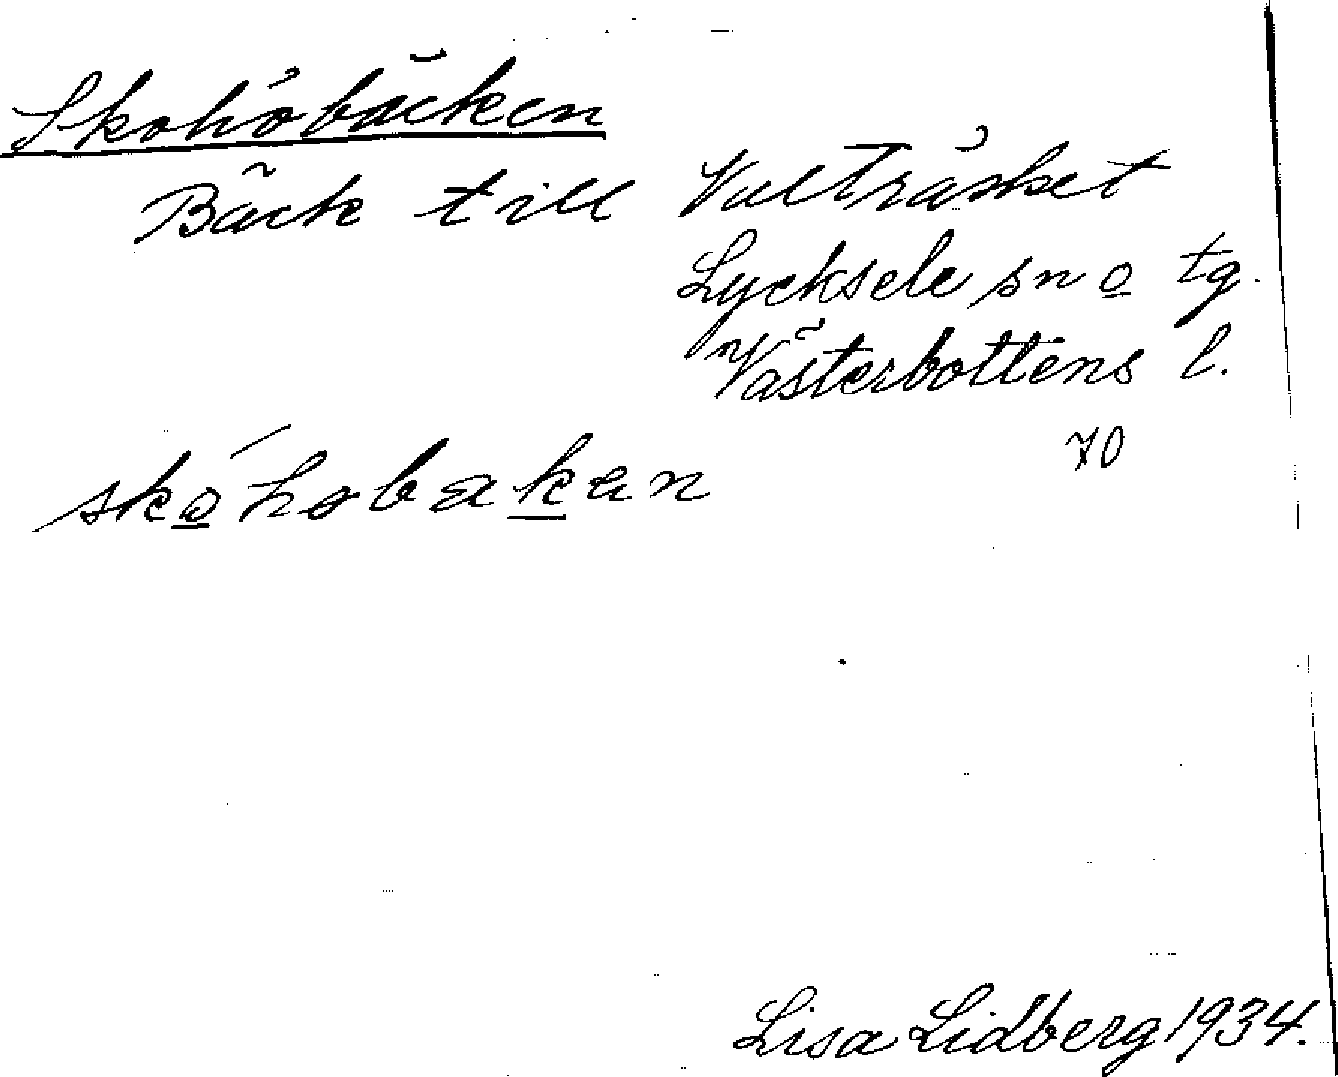 Skohöbäcken
Bäck till Vulträsket
Lycksele sn o tg.
Västerbottens l.
70
skohobakan
Lisa Lidberg 1934.